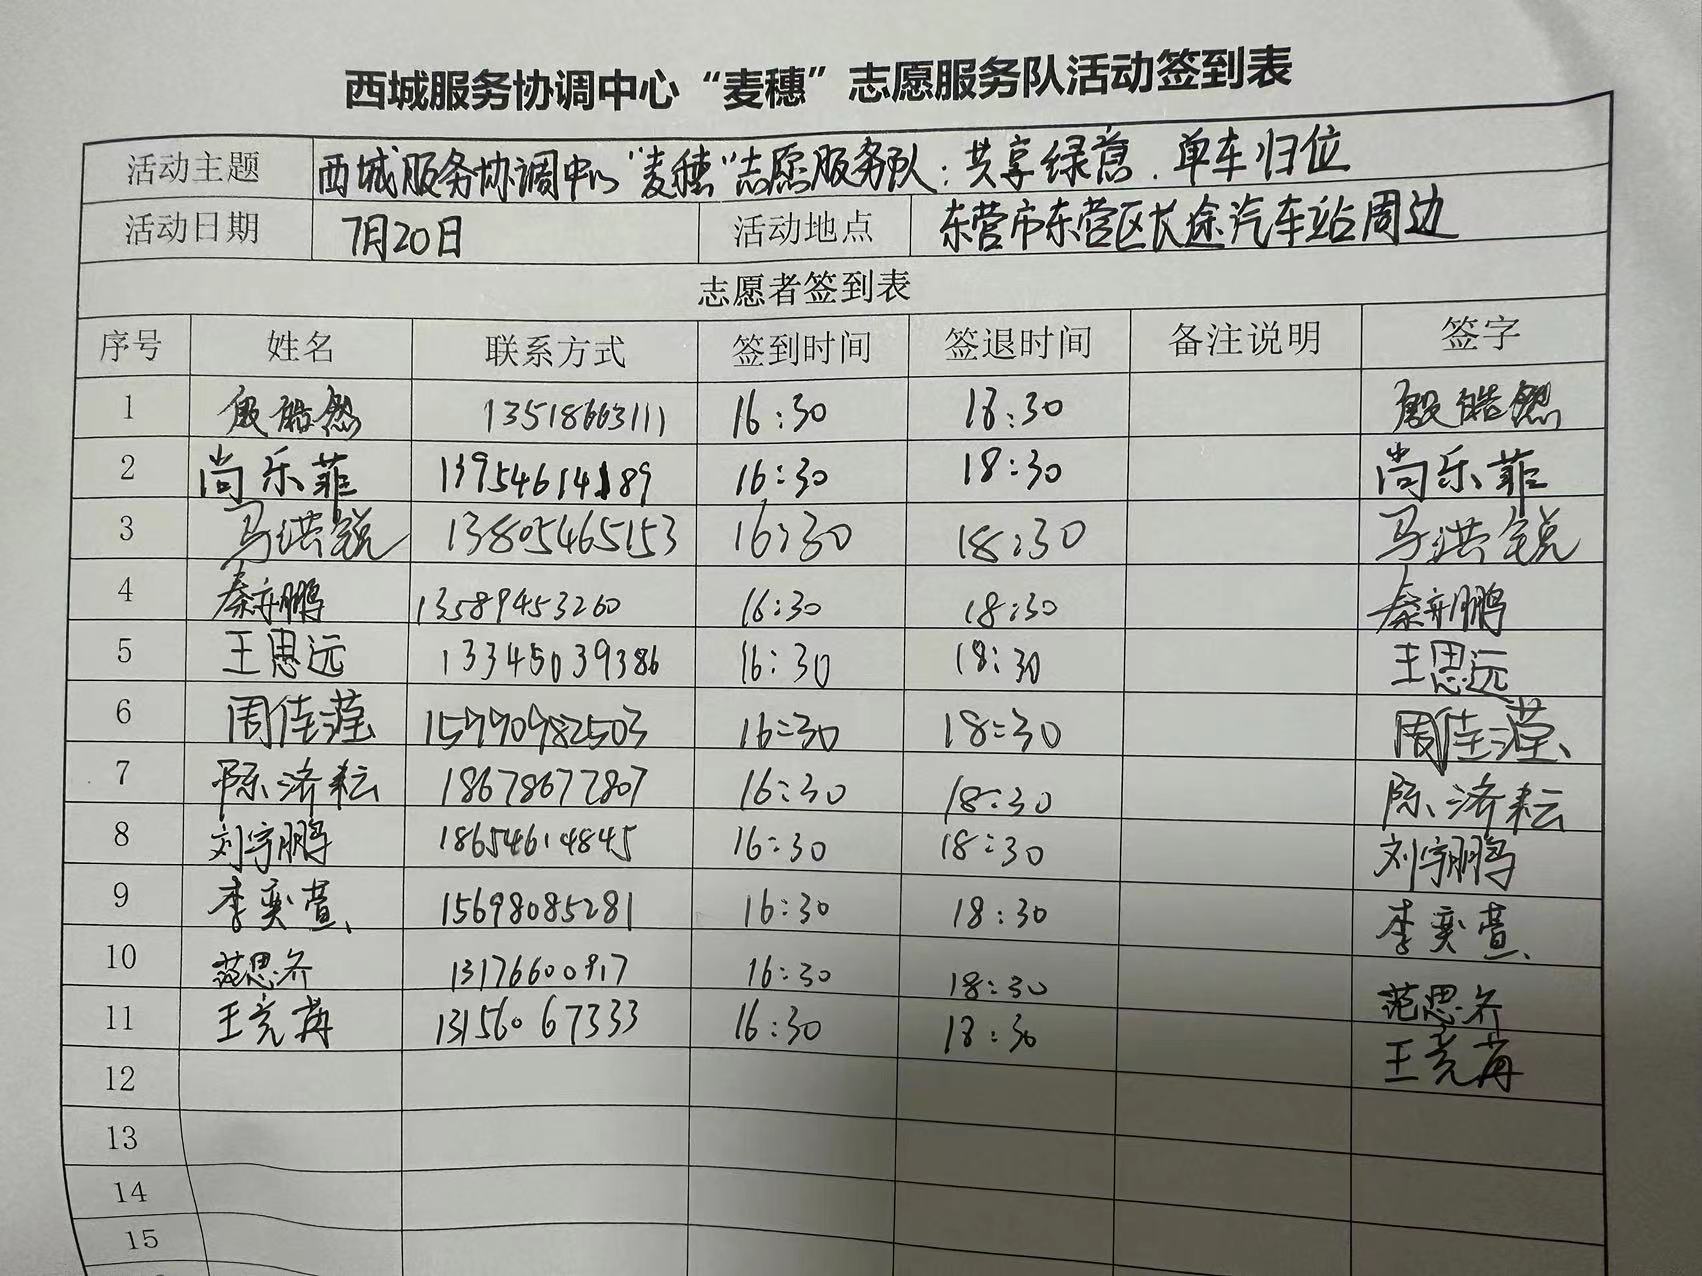 西城服务协调中心“麦穗”志愿服务队活动签到表
活动主题 西城服务协调中心“麦穗”志愿服务队：共享绿意．单车归位
活动日期 7月20日 活动地点 东营市东营区长途汽车站周边
志愿者签到表
序号 姓名 联系方式 签到时间 签退时间 备注说明 签字
1 殷皓然 13518663111 16:30 18:30 殷皓然
2 尚乐菲 13954614189 16:30 18:30 尚乐菲
3 马洪锐 13805465153 16:30 18:30 马洪锐
4 秦奔鹏 13589453260 16:30 18:30 秦奔鹏
5 王思远 13345039386 16:30 18:30 王思远
6 周佳滢 16:30 18:30 周佳滢
7 陈济耘 18678677807 16:30 18:30 陈济耘
8 刘宇鹏 18654614845 16:30 18:30 刘宇鹏
9 李奕萱 15698085281 16:30 18:30 李奕萱
10 范思齐 13176600917 16:30 18:30 范思齐
11 王竞苒 13156067333 16:30 18:30 王竞苒
12
13
14
15